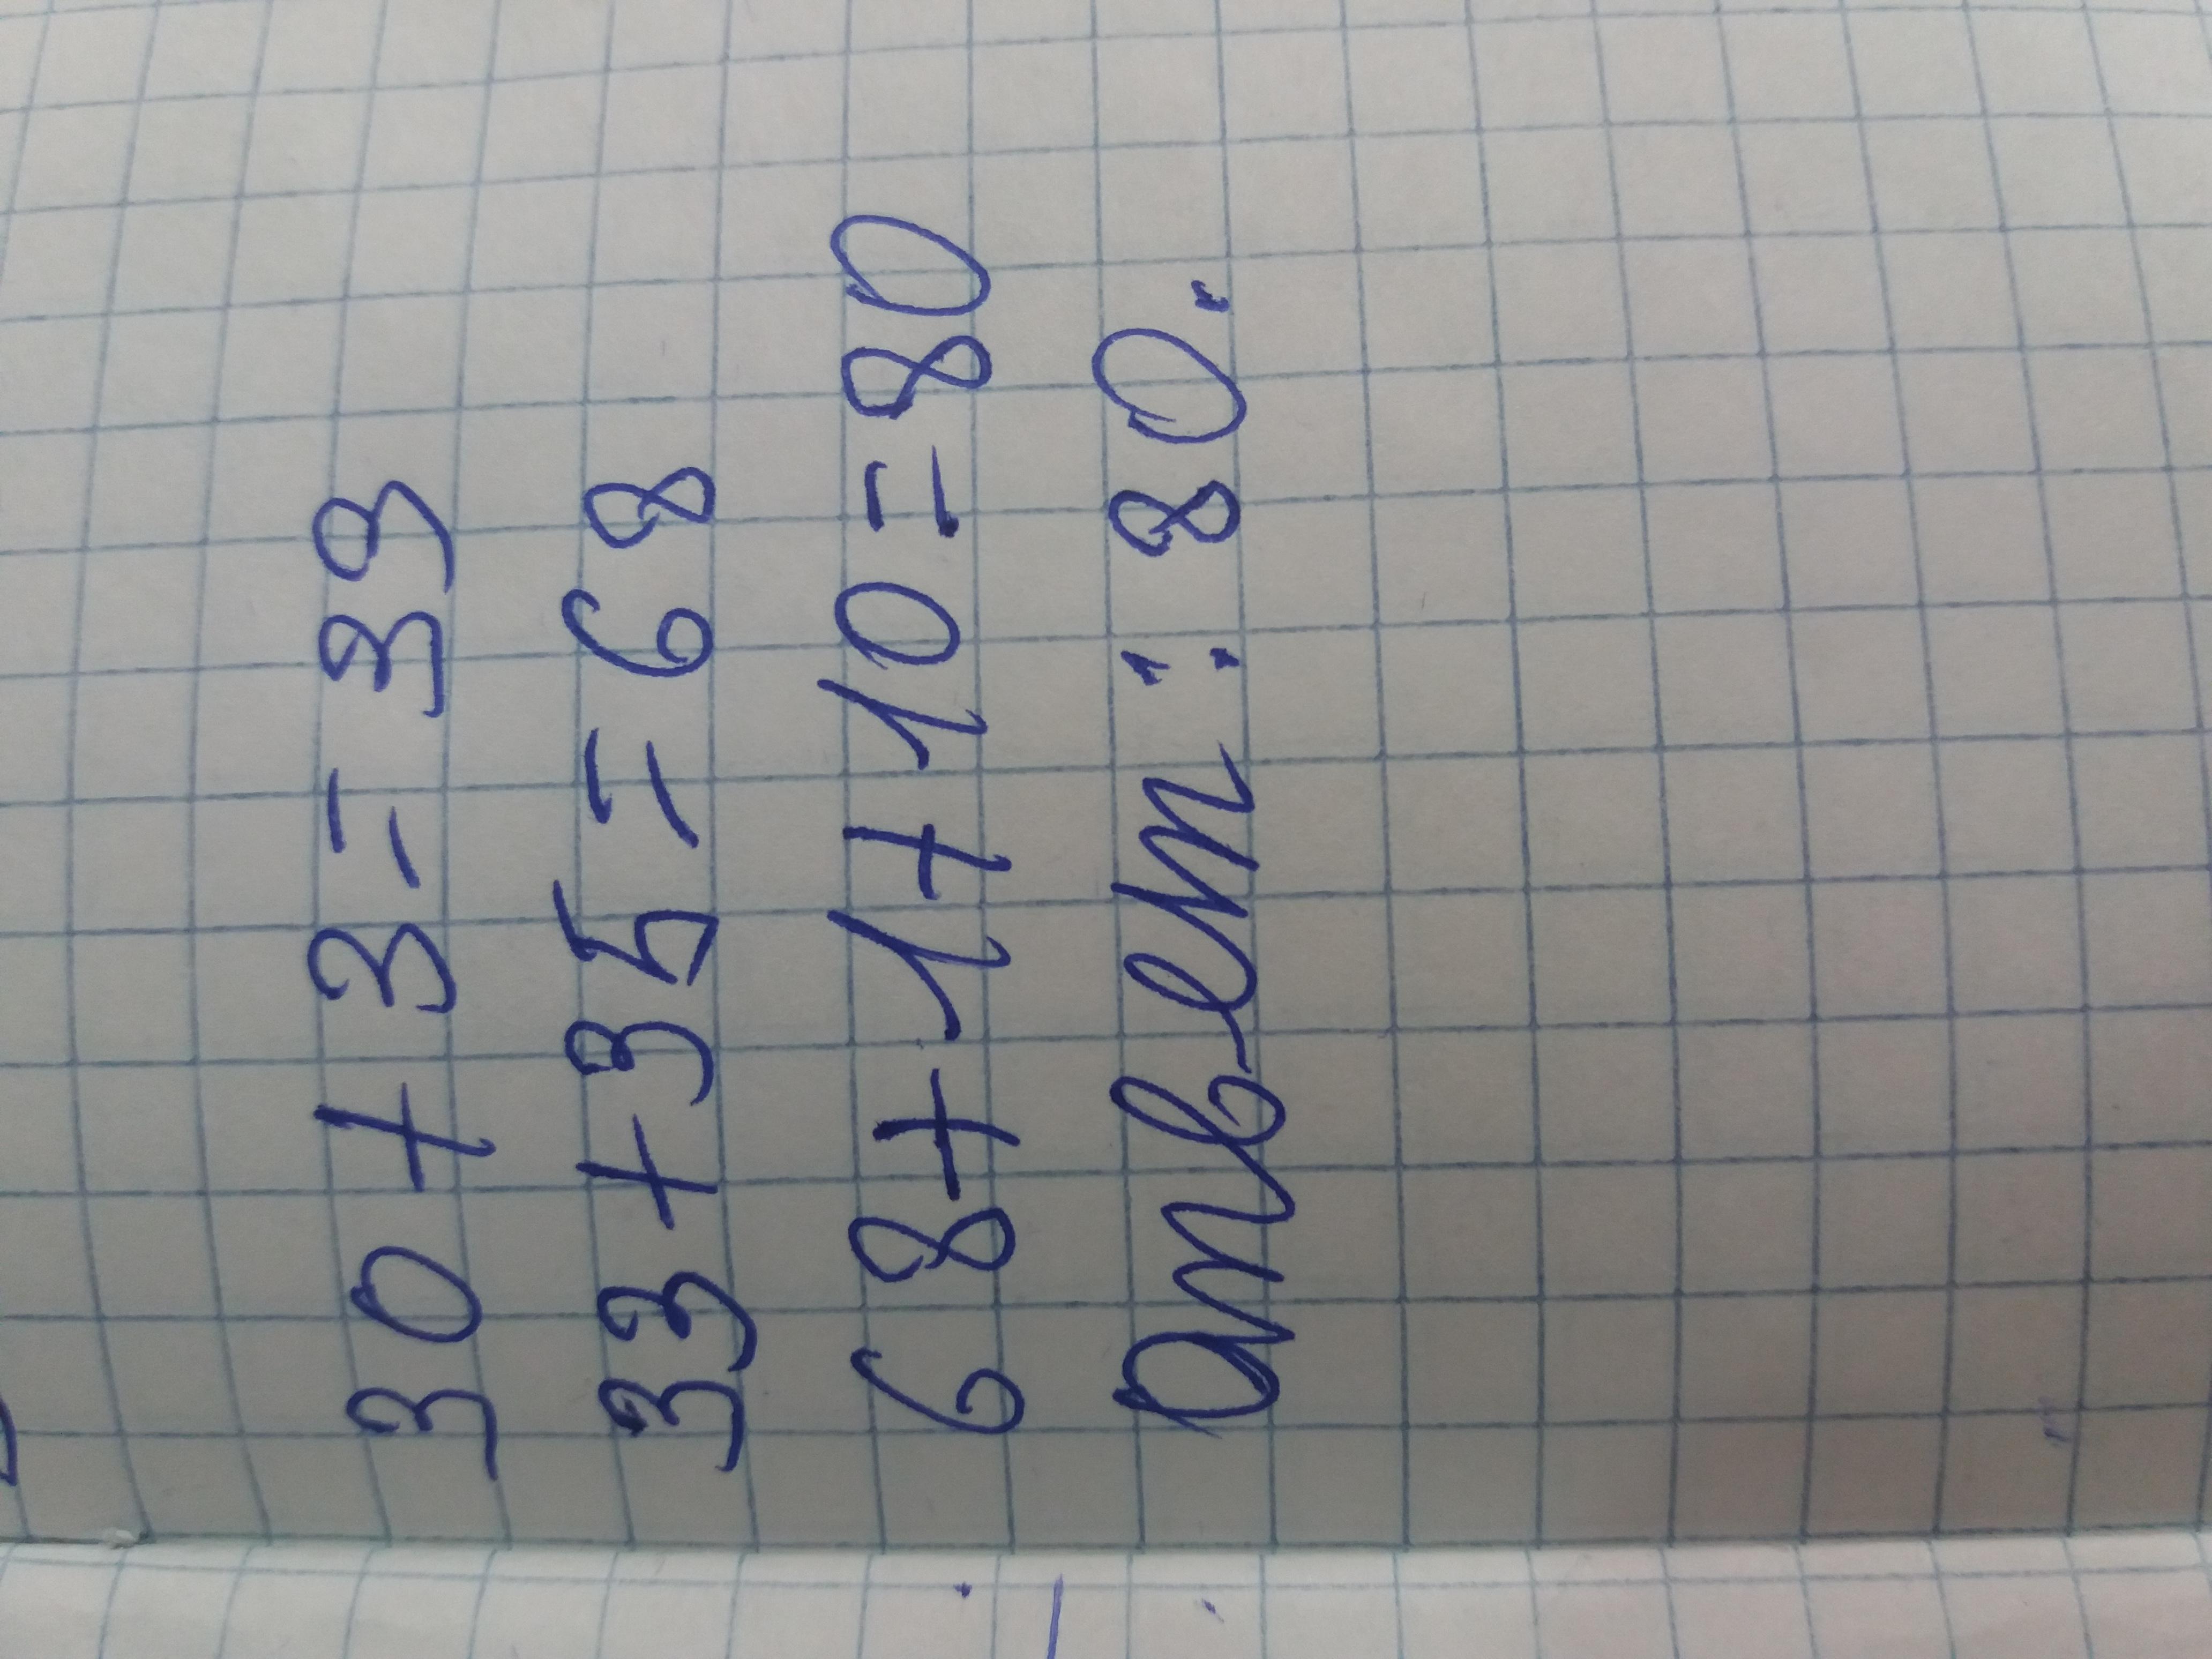 30 + 3 = 39
33 + 35 = 68
68 + 1 + 10 = 80
Ответ: 80.